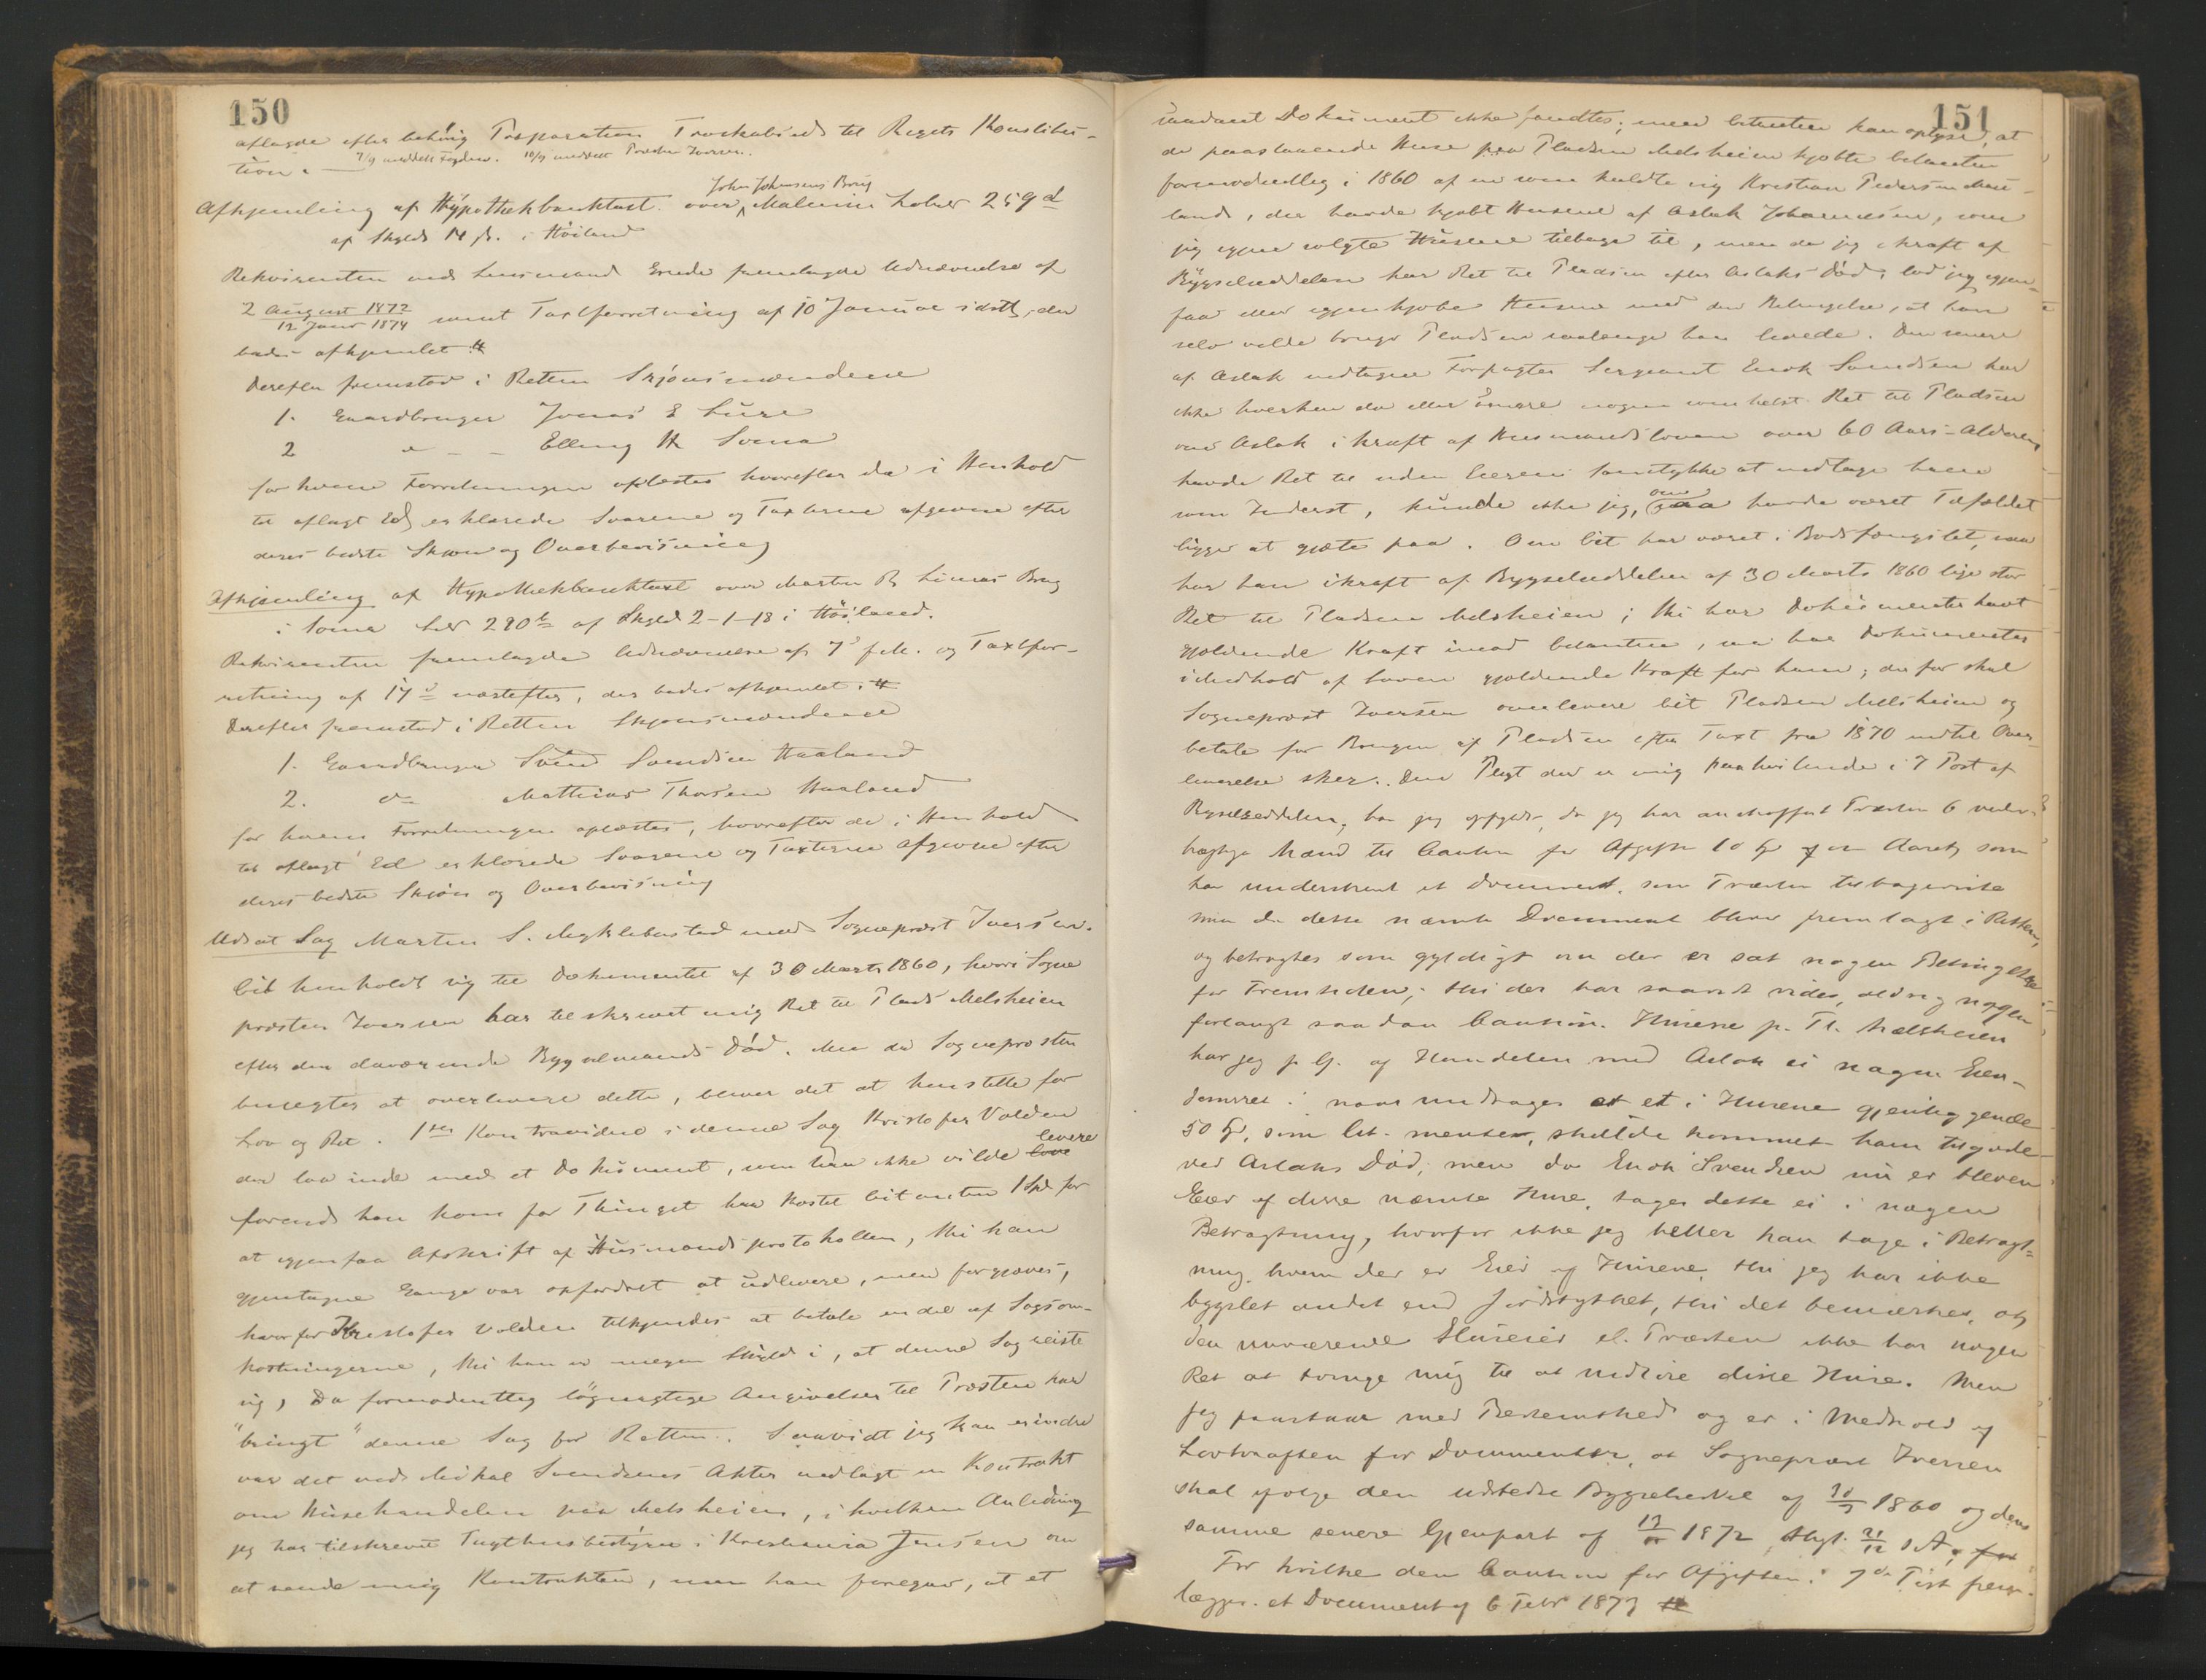 150
aflagde efter behørig Præparation Troskabsed til Rigets Konstitu-
tion.
7/9 meddelt Fogderiet. 10/9 meddelt Præsten Iversen.
John Johnsens Brug
Afhjemling af Hypothekbanktaxt over Malmin Løbnr 259 d
af Skyld i Höiland
Rekvirenten ved Lensmand fremlagde Udnævnelse af
2 August 1872
12 Janr 1874 samt Taxtforretning af 10 Januar sidstl, der
bades afhjemlet #
Derefter fremstod i Retten Skjönsmændene
1. Gaardbruger Jonas E Lure
2 " - - Elling H Soma
for hvem Forretningen oplæstes hvorefter de i Henhold
til aflagt Ed erklærede Svarene og Taxterne afgivne efter
deres bedste Skjøn og Overbevisning
Afhjemling af Hypothekbanktaxt over Morten B Limas Brug
i Soma Lnr 290 b af Skyld 2-1-18 i Höiland.
Rekvirenten fremlagde Udnævnelse af 7 f.M. og Taxtfor-
retning af 17 d næstefter, der bades afhjemlet #
Derefter fremstod i Retten Skjønsmændene
1. Gaardbruger Svend Svendsen Haaland
2. do Mathias Thorsen Haaland
for hvem Forretningen oplæstes, hvorefter de i Henhold
til aflagt Ed erklærede Svarene og Taxterne afgivne efter
deres bedste Skjön og Overbevisning
Udsat Sag Morten S. Myklebustad mod Sogneprest Iversen.
Cit henholdt sig til Dokumentet af 30 Marts 1860, hvori Sogne
præsten Iversen har tilskrevet mig Ret til Plads Melsheien
efter den daværende Bygselmands Død. Men da Sognepræsten
benegter at overlevere dette, bliver det at henstille for
Lov og Ret. 1ste Kontravidne i denne Sag Kristofer Volden
der laa inde med et Dokument, som han ikke vilde levere
forend han kom for Thinget har kostet Citanten 1 Spd for
at igjenfaa Afskrift af Husmandsprotokollen, thi han
gjentagne Gange var opfordret at udlevere, men forgjæves,
hvorfor Kristofer Volden tilkjendes at betale en del af Sagsom-
kostningerne, thi han er megen Skyld i, at denne Sag reiste
sig, Da formodentlig løgnagtige Angivelser til Præsten har
"bringt" denne Sag for Retten. Saavidt jeg kan erindre
var det ved Mikal Svendsens Akter nedlagt en Kontrakt
om Husehandelen paa Melsheien, i hvilken Anledning
jeg har tilskrevet Tugthusbestyrer i Kristiania Jensen om
at sende mig Kontrakten, men han foregav, at et
151
saadant Dokument ikke fandtes; men Citanten kan oplyse, at
de paastaaende Huse paa Pladsen Melsheien kjøbte Citanten
formodentlig i 1860 af en som kaldte sig Kristian Pedersen
land, der havde kjøbt Husene af Aslak Johannesen, som
jeg igjen solgte Husene tilbage til, men da jeg i kraft af
Bygselseddelen har Ret til Pladsen efter Aslaks Död, lod jeg igjen-
faa eller igjenkjøbe Husene med den Betingelse, at han
selv vilde bruge Pladsen saalenge han levede. Den senere
af Aslak indtagne Forpagter Sergeant Enok Svendsen har
ikke hverken da eller senere nogen som helst Ret til Pladsen
om Aslak i kraft af Husmandsloven over 60 Aars-Alderen
havde Ret til uden Eierens Samtykke at indtage ham
som Inderst, kunde ikke jeg, om havde været Tilfældet
ligge at gjæte paa. Om Cit har været i Bodsfængslet, saa
har han i kraft af Bygselseddelen af 30 Marts 1860 lige stor
Ret til Pladsen Melsheien; thi har Dokumentet havt
gjeldende Kraft imod Citanten, saa har Dokumentet
i Medhold af Loven gjeldende Kraft for ham; derfor skal
Sogneprest Iversen overlevere Cit Pladsen Melsheien og
betale for Brugen af Pladsen efter Taxt fra 1870 indtil Over-
leverelse sker. Den Pligt der er mig paahvilende i 7 Post af
Bygselseddelen, har jeg opfyldt, da jeg har anskaffet Præsten 6 veder-
hægtige Mænd til Caution for Afgiften 10 Spd om Aaret, som
har underskrevet et Document, som Præsten tilbageviste
men da dette nævnte Document bliver fremlagt i Retten,
og betragtes som gyldigt om der er sat nogen Betingelse
for Fremtiden; thi der har saavidt vides, aldrig nogen
forlangt saadan Caution. Husene p. Pl. Melsheien
har jeg p. G. af Handelen med Aslak ei nogen Eien-
domsret i naar undtages et i Husene gjenliggende
50 Spd, som Cit. mente, skulde kommet ham tilgode
ved Aslaks Död, men da Enok Svendsen nu er bleven
Eier af disse nævnte Huse, tages dette ei i nogen
Betragtning, hvorfor ikke jeg heller kan tage i Betragt-
ning hvem der er Eier af Husene, thi jeg har ikke
bygslet andet end Jordstykket, thi det bemærkes, at
den nuværende Huseier el. Præsten ikke har nogen
Ret at tvinge mig til at indløse disse Huse. Men
jeg paastaar med Bestemthed og er i Medhold af
Lovkraften for Documenter, at Sogneprest Iversen
skal følge den udstedte Bygselseddel af 30/3 1860 og dens
samme senere Gjenpart af 1872, thgl. 21/12 s A,
For hvilke den Caution for Afgiften i 7de Post frem-
lægges et Document af 6 Febr 1873 #